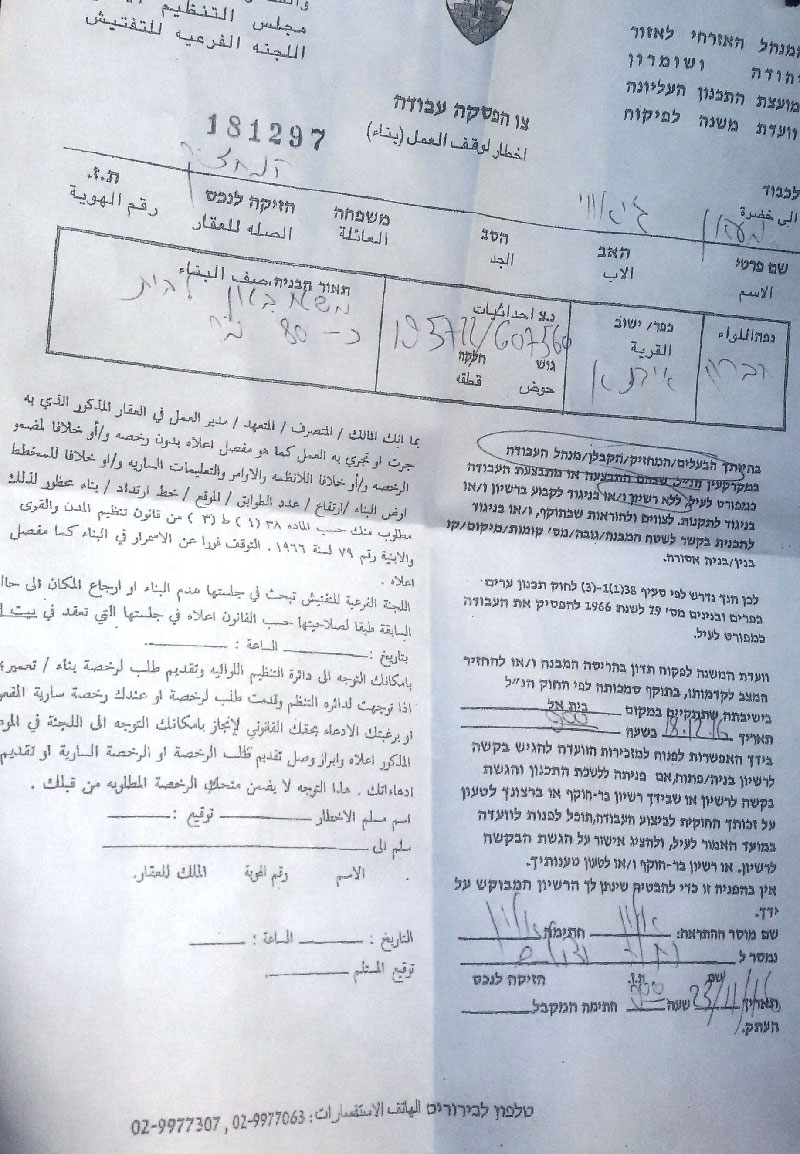 המנהל האזרחי לאזור
יהודה ושומרון
מועצת התכנון העליונה
וועדת משנה לפיקוח
مجلس التنظيم
اللجنه الفرعيه للتفتيش
צו הפסקה עבודה
اخطار لوقف العمل (بناء)
181297
לכבוד
الى حضرة
שם פרטי
האב
הסב
משפחה
הזיקה לנכס
ת.ז.
الاسم
الاب
الجد
العائلة
الصله للعقار
رقم الهوية
נפה/ללואء
כפר/ ישוב
القرية
נ.צ احداثيات
195722/607560
גוש חלקה
حوض قطقه
תאור הבניה. صف البناء
כ- 80 מ"ר
בהיותך הבעלים/המחזיק/הקבלן/מנהל העבודה
במקרקעין הנ״ל שבהם התבצעה או מתבצעת העבודה
כמפורט לעיל, ללא רשיון ו/או בניגוד לקבוע ברשיון ו/או
בניגוד לתקנות. לצווים ולהוראות שבתוקף, ו/או בניגוד
לתכנית בקשר לשטח המבנה/גובה/מס׳ קומות/מיקום/קו
בנין/בניה אסורה.
לכן הנך נדרש לפי סעיף 38(1)-(3) לחוק תכנון ערים
כפרים ובנינים מס׳ 79 לשנת 1966 להפסיק את העבודה
כמפורט לעיל.
וועדת המשנה לפקוח תדון בהריסת המבנה ו/או להחזיר
המצב לקדמותו, בתוקף סמכותה לפי החוק הנ״ל
בישיבתה, שתתקיים במקום בית אל
תאריך 18.12.16 בשעה
בידך האפשרות לפנות למזכירות הוועדה להגיש בקשה
לרשיון בניה/פתוח, אם פניתה ללשכת התכנון והגשת
בקשה לרשיון או שבידך רשיון בר-תוקף או ברצונך לטעון
על זכותך החוקית לביצוע העבודה, תוכל לפנות לוועדה
במועד האמור לעיל, ולהציג אישור על הגשת הבקשה
לרשיון. או רשיון בר-תוקף ו/או לטעון טענותיך.
אין בהפנית זו כדי להבטיח שינתן לך הרשיון המבוקש על
ידך.
שם מוסר ההתראה: חתימה
נמסר ל
שם ת.ז. הזיקה לנכס
תאריך 23/11/16 שעה חתימת המקבל
העתק.
بما انك المالك / المتصرف / المتعهد / مدير العمل في العقار المذكور الذي به
جرت او تجري به العمل كما هو مفصل اعلاه بدون رخصه و/أو خلافا لمضمو
الرخصه و/أو خلافا للانظمه والاوامر والتعليمات الساريه و/او خلافا للمخطط
ارض البناء /ارتفاع / عدد الطوابق / الموقع / خط ارتداد / بناء محظور لذلك
مطلوب منك حسب الماده ٣٨ (١) ط (٣) من قانون تنظيم المدن والقرى
والابنية رقم ٧٩ لسنة ١٩٦٦. التوقف فورا عن الاستمرار في البناء كما مفصل
اعلاه .
اللجنة الفرعية للتفتيش تبحث في جلستها هدم البناء او ارجاع المكان الى حال
السابقة طبقا لصلاحيتها حسب القانون اعلاه في جلستها التي تعقد في بيت
بتاريخ : الساعة :
بامكانك التوجه الى دائرة التنظيم اللوائيه وتقديم طلب لرخصة بناء / تعمير
اذا توجهت لدائره التنظم وقدمت طلب لرخصة او عندك رخصة سارية المفع
او برغبتك الادعاء بحقك القانوني لإنجاز بامكانك التوجه الى اللجنة في المو
المذكور اعلاه وابراز وصل تقديم طلب الرخصة او الرخصة السارية او تقديم
ادعاءاتك . هذا التوجه لا يضمن منحك الرخصة المطلوبه من قبلك .
اسم مسلم الاخطار توقيع :
سلم الى
الاسم رقم الهوية الملك للعقار.
التاريخ : الساعة :
توقيع المستلم
טלפון לבירורים الهاتف الاستفسارات: 02-9977063 , 02-9977307